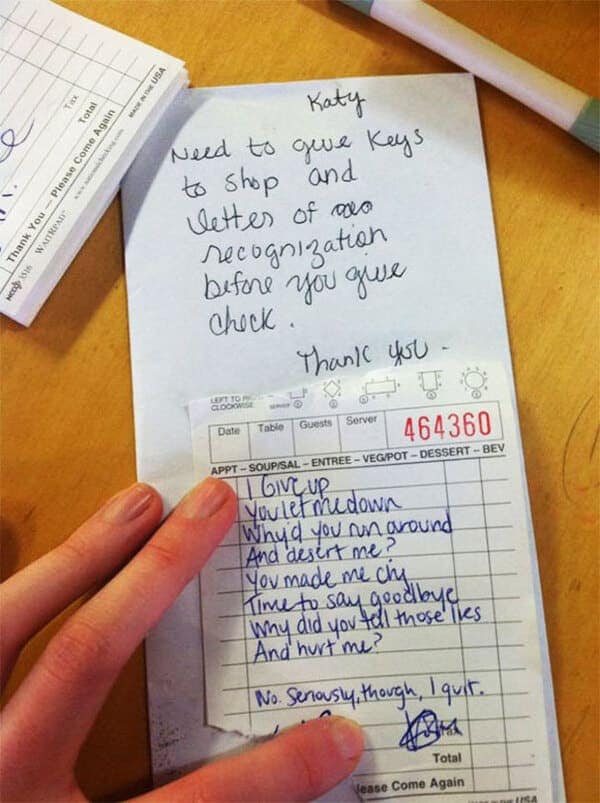 Tax
Total
Thank You – Please Come Again
MADE IN THE USA
3516 WAITRPAD
Katy
Need to give Keys
to shop and
letter of
recognization
before you give
check.
Thank you -
LEFT TO
CLOCKWISE
Date Table Guests Server 464360
APPT – SOUP/SAL – ENTREE – VEG/POT – DESSERT – BEV
I Give up
You let me down
Why'd you run around
And desert me?
You made me cry
Time to say goodbye
Why did you tell those lies
And hurt me?
No. Seriously, though, I quit.
Tax
Total
lease Come Again
USA